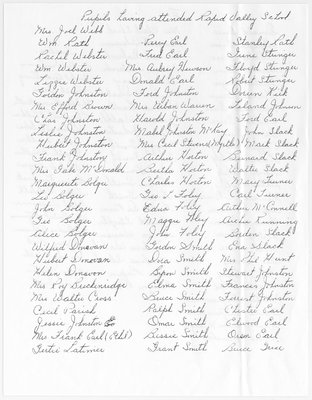 Pupils having attended Rapid Valley School
Mrs Joel Webb
Wm Rath Percy Earl Stanley Rath
Rachel Webster Fred Earl Irene Stringer
Wm Webster Mrs Aubrey Hewson Floyd Stringer
Lizzie Webster Donald Earl Robert Stringer
Gordon Johnston Ford Johnston Kirk
Mrs Efford Brown Mrs Urban Warren Leland Johnson
Chas Johnston Harold Johnston Ford Earl
Leslie Johnston Mabel Johnston McKay John Slack
Hubert Johnston Mrs Cecil Stevens (Myrtle) Mark Slack
Frank Johnston Arthur Horton Bernard Slack
Mrs Pate McDonald Bertha Horton Walter Slack
Marguerite Bolger Charles Horton Mary Turner
Leo Bolger Geo S Foley Carl Turner
John Bolger Edna Foley Arthur McConnell
Geo Bolger Maggie Foley Archie Running
Alice Bolger John Foley Borden Slack
Wilfred Donovan Gordon Smith Ena Slack
Hubert Donovan Dora Smith Mrs Geo Hunt
Helen Donovan Byron Smith Stewart Johnston
Mrs Roy Breckenridge Elma Smith Frances Johnston
Mrs Walter Cross Bruce Smith Forrest Johnston
Cecil Parish Ralph Smith Chester Earl
Jessie Johnston Omar Smith Elwood Earl
Mrs Frank Earl (Ethel) Bessie Smith Orson Earl
Gertie Latimer Grant Smith Bruce